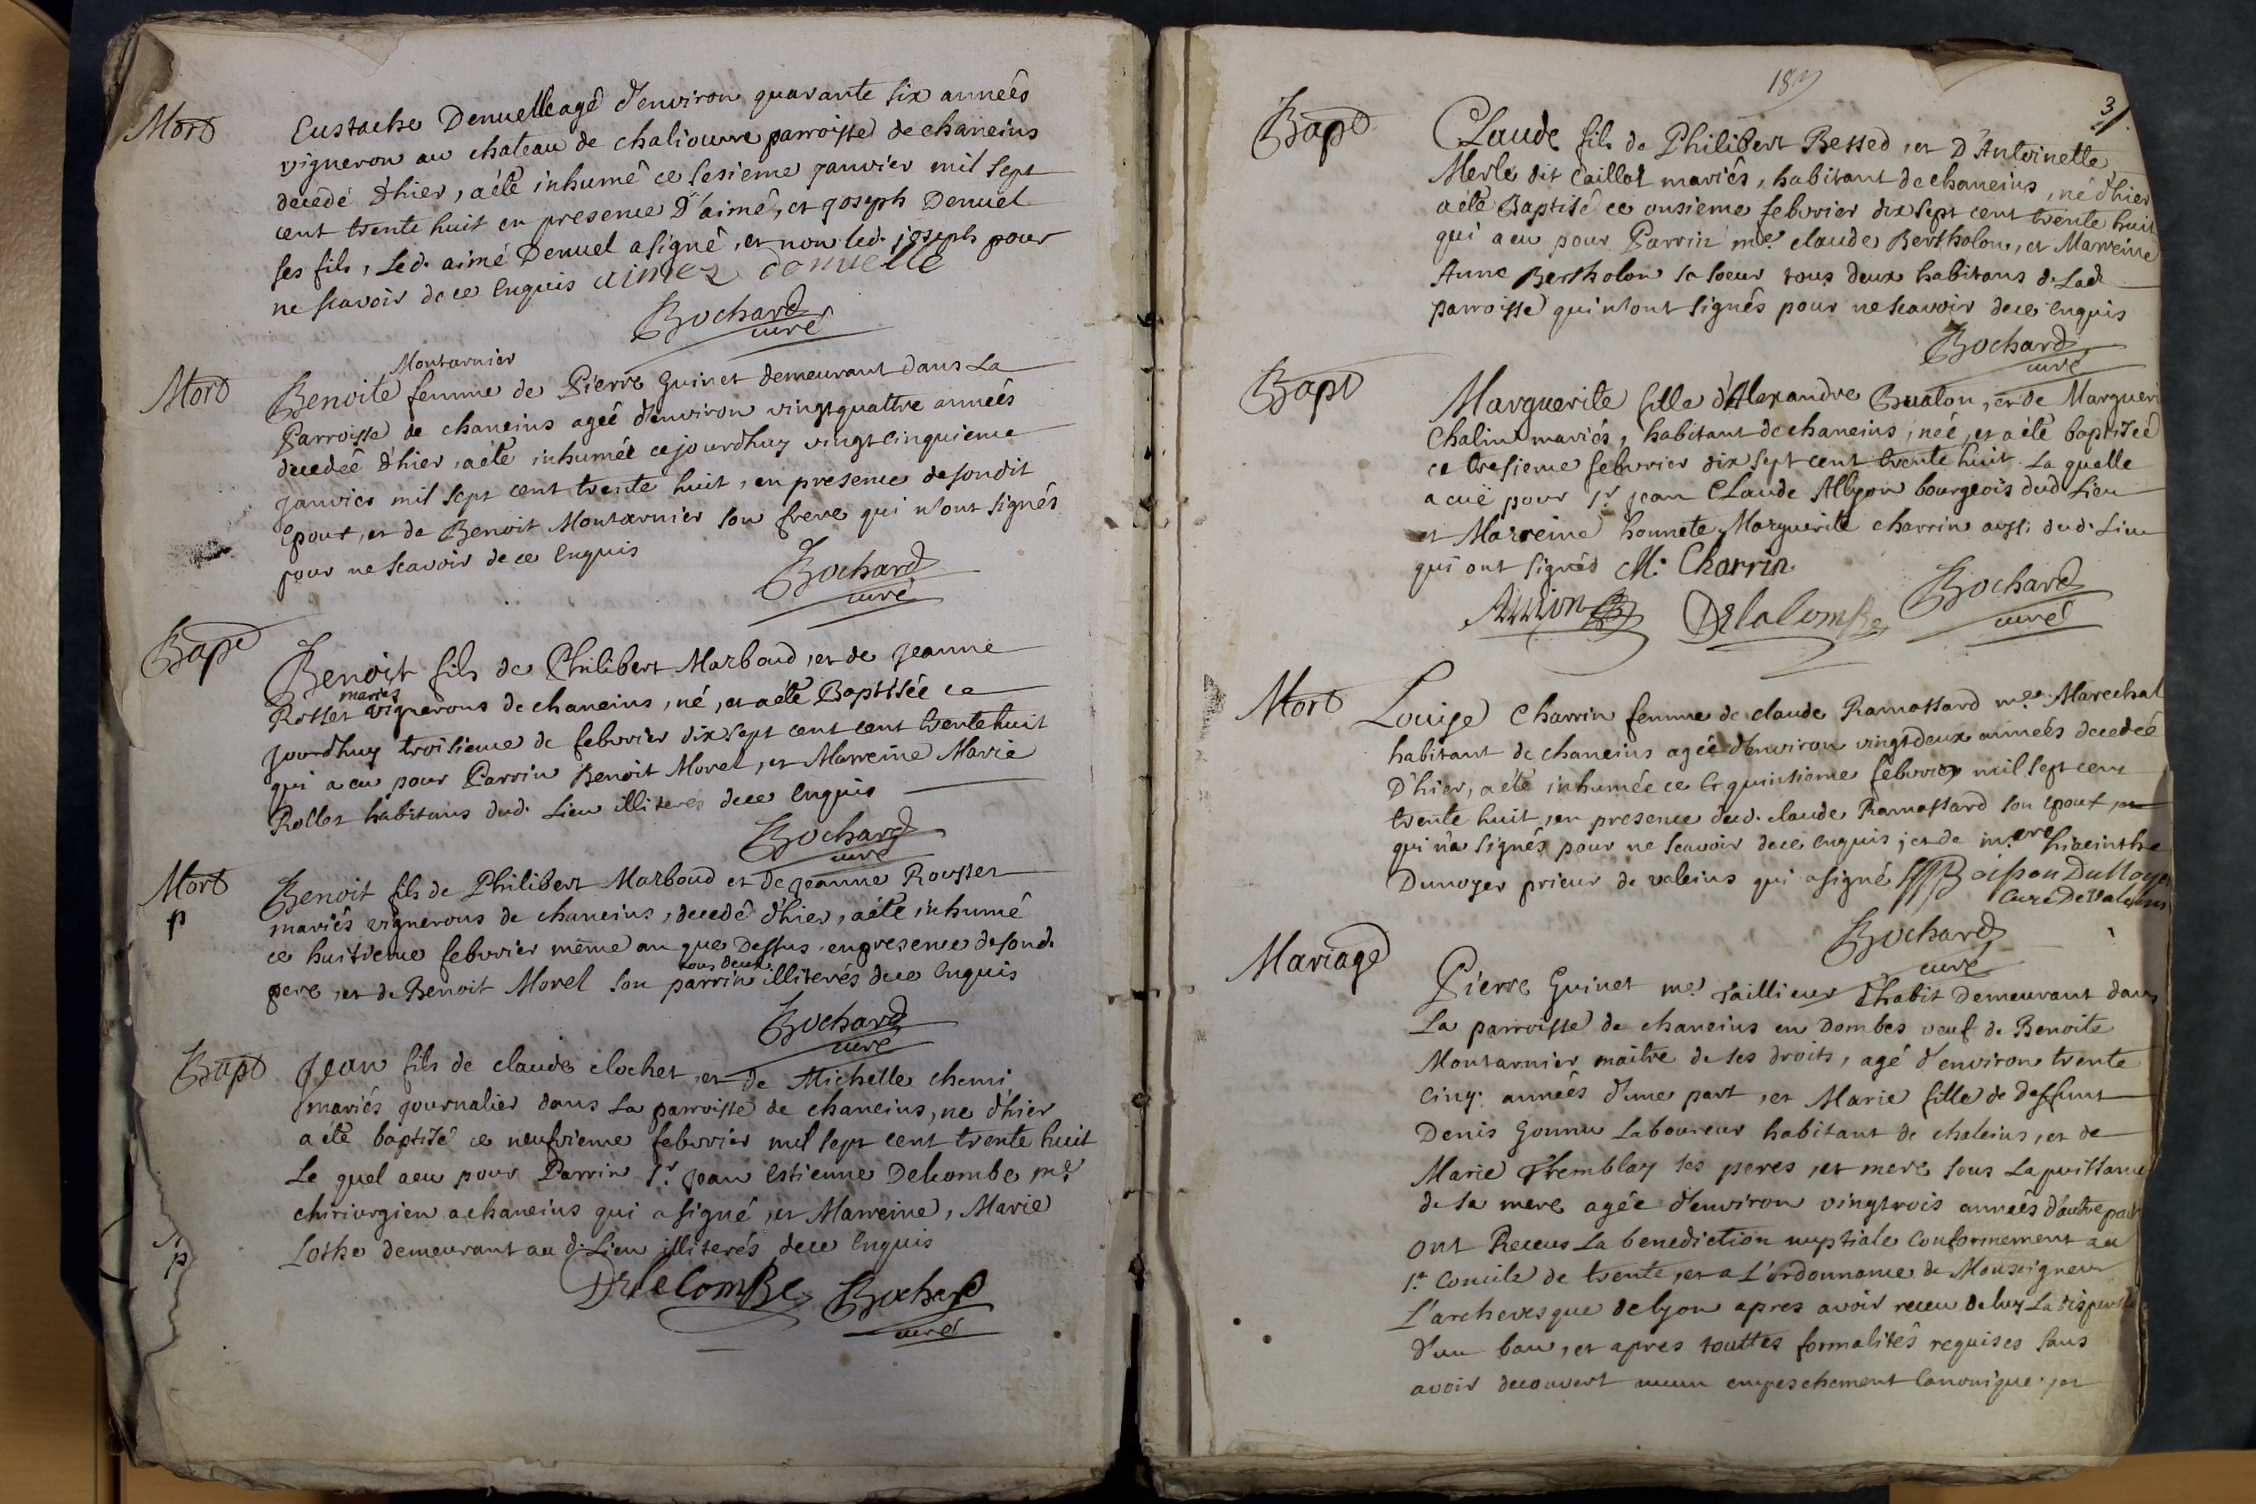 Mort
Eustache Denuelle agé d'environ quarante six années
vigneron au chateau de chaliouvre parroisse de chaneins
decedé d'hier, a été inhumé ce sesieme janvier mil sept
cent trente huit en presence d'aimé, et joseph Denuel
ses fils, led. aimé Denuel a signé, et non led. joseph pour
ne scavoir de ce enquis aimez denuelle
Bochard
curé
Mort
Montarnier
Benoite femme de Pierre Guinet demeurant dans La
Parroisse de chaneins ageé d'environ vingt quattre années
decedeé d'hier, a été inhumée cejourdhuy vingt cinquieme
janvier mil sept cent trente huit, en presence desondit
Epoux, et de Benoit Montarnier son frere qui n'ont signés
pour ne scavoir de ce enquis
Bochard
curé
Bapt
Benoit fils de Philibert Marboud, et de jeanne
mariés
Rosset vignerons de chaneins, né, et a été Baptisée ce
jourdhuy troisieme de febvrier dix sept cent cent trente huit
qui a eu pour Parrin Benoit Morel, et Marreine Marie
Rollet habitans dud. Lieu illiterés de ce enquis
Bochard
curé
Mort
p
Benoit fils de Philibert Marboud et de jeanne Rousset
mariés vignerons de chaneins, decedé d'hier, a été inhumé
ce huitieme febvrier même an que Dessus en presence de sond.
tous deux
pere, et de Benoit Morel son parrin illiterés de ce enquis
Bochard
curé
Bapt
Jean fils de claude clochet, et de Michelle chemi
mariés journalier dans La parroisse de chaneins, ne d'hier
a été baptisé ce neufvieme febvrier mil sept cent trente huit
Le quel a eu pour Parrin Sr. jean Estienne Delecombe me
chirurgien a chaneins qui a signé, et Marreine, Marie
Lothe demeurant au d. Lieu illiterés de ce Enquis
p
Delecombe Bochard
curé
3
Bapt
Claude fils de Philibert Bessed, et D'Antoinette
Merle dit Caillot mariés, habitant de chaneins, né d'hier
a été Baptisé ce onsieme febvrier dix sept cent trente huit
qui a eu pour Parrin me. claude Bertholon, et Marreine
Anne Bertholon sa soeur tous deux habitans de Lad.
parroisse qui n'ont signés pour ne scavoir de ce enquis
Bochard
curé
Bapt
Marguerite fille d'Alexandre Bualon, et de Margueri
Chalin mariés, habitant de chaneins, née, et a été baptiseé
ce tresieme febvrier dix sept cent trente huit. La quelle
a cuë pour Sr jean Claude Allyon bourgeois dud. Lieu
et Marreine honnete Marguerite charrin aussi dud. Lieu
qui ont signés M. Charrin
Allion Delalombe Bochard
curé
Mort
Louise Charrin femme de claude Ramassard me. Marechal
habitant de chaneins agée d'environ vingt deux années decedée
D'hier, a été inhumée ce quinsieme febvrier mil sept cent
trente huit, en presence dud. claude Ramassard son epoux, et
qui n'a signés pour ne scavoir de ce enquis, et de me hiacinthe
Dunoyer prieur de valeins qui a signé Boisson Du Noyer
Curé De Valeins
Bochard
curé
Mariage
Pierre Guinet me. taillieur d'habit Demeurant dans
La parroisse de chaneins en Dombes veuf de Benoite
Montarnier maitre de ses droits, agé d'environ trente
cinq. années d'une part, et Marie fille de deffunt
Denis Gonnu Laboureur habitant de chaleins, et de
Marie Tremblay ses peres, et mere sous La puissance
de sa mere agée d'environ vingt trois années d'autre part
ont Receus La benediction nuptiale conformement au
St. Concile de trente, et a L'ordonnance de Monseigneur
L'archevesque de lyon apres avoir receu de luy La dispense
d'un ban, et apres touttes formalités requises sans
avoir decouvert aucun empeschement Canonique, et